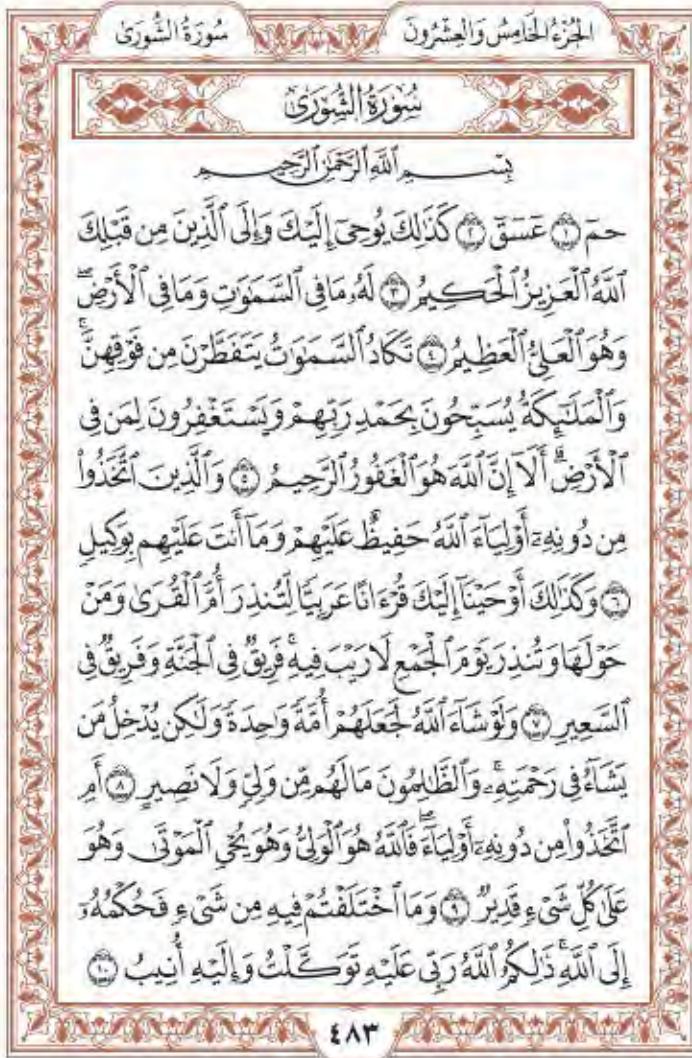 الجُزْءُ الخَامِسُ وَالعِشْرُونَ سُورَةُ الشُّورَىٰ
سُورَةُ الشُّورَىٰ
بِسْمِ ٱللَّهِ ٱلرَّحْمَٰنِ ٱلرَّحِيمِ
حمٓ ۝١ عٓسٓقٓ ۝٢ كَذَٰلِكَ يُوحِىٓ إِلَيْكَ وَإِلَى ٱلَّذِينَ مِن قَبْلِكَ
ٱللَّهُ ٱلْعَزِيزُ ٱلْحَكِيمُ ۝٣ لَهُۥ مَا فِى ٱلسَّمَٰوَٰتِ وَمَا فِى ٱلْأَرْضِۖ
وَهُوَ ٱلْعَلِىُّ ٱلْعَظِيمُ ۝٤ تَكَادُ ٱلسَّمَٰوَٰتُ يَتَفَطَّرْنَ مِن فَوْقِهِنَّۚ
وَٱلْمَلَٰٓئِكَةُ يُسَبِّحُونَ بِحَمْدِ رَبِّهِمْ وَيَسْتَغْفِرُونَ لِمَن فِى
ٱلْأَرْضِۗ أَلَآ إِنَّ ٱللَّهَ هُوَ ٱلْغَفُورُ ٱلرَّحِيمُ ۝٥ وَٱلَّذِينَ ٱتَّخَذُوا۟
مِن دُونِهِۦٓ أَوْلِيَآءَ ٱللَّهُ حَفِيظٌ عَلَيْهِمْ وَمَآ أَنتَ عَلَيْهِم بِوَكِيلٍ
۝٦ وَكَذَٰلِكَ أَوْحَيْنَآ إِلَيْكَ قُرْءَانًا عَرَبِيًّا لِّتُنذِرَ أُمَّ ٱلْقُرَىٰ وَمَنْ
حَوْلَهَا وَتُنذِرَ يَوْمَ ٱلْجَمْعِ لَا رَيْبَ فِيهِۚ فَرِيقٌ فِى ٱلْجَنَّةِ وَفَرِيقٌ فِى
ٱلسَّعِيرِ ۝٧ وَلَوْ شَآءَ ٱللَّهُ لَجَعَلَهُمْ أُمَّةً وَٰحِدَةً وَلَٰكِن يُدْخِلُ مَن
يَشَآءُ فِى رَحْمَتِهِۦۚ وَٱلظَّٰلِمُونَ مَا لَهُم مِّن وَلِىٍّ وَلَا نَصِيرٍ ۝٨ أَمِ
ٱتَّخَذُوا۟ مِن دُونِهِۦٓ أَوْلِيَآءَۖ فَٱللَّهُ هُوَ ٱلْوَلِىُّ وَهُوَ يُحْىِ ٱلْمَوْتَىٰ وَهُوَ
عَلَىٰ كُلِّ شَىْءٍ قَدِيرٌ ۝٩ وَمَا ٱخْتَلَفْتُمْ فِيهِ مِن شَىْءٍ فَحُكْمُهُۥٓ
إِلَى ٱللَّهِۚ ذَٰلِكُمُ ٱللَّهُ رَبِّى عَلَيْهِ تَوَكَّلْتُ وَإِلَيْهِ أُنِيبُ ۝١٠
٤٨٣